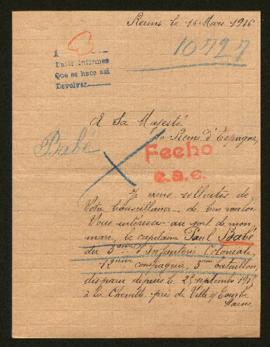 Reims le 16 Mars 1916
10727
A
Dalle informes
Que se hace así
Devolver
A Sa Majesté
la Reine d'Espagne,
Babé
Fecho
e.s.c.
Je viens solliciter de
Votre bienveillance de bien vouloir
Vous intéresser au sort de mon
mari, le capitaine Paul Babé
du 3ème d'Infanterie Coloniale
12ème compagnie, 3ème bataillon,
disparu depuis le 25 septembre 1915
près de Ville
Marne